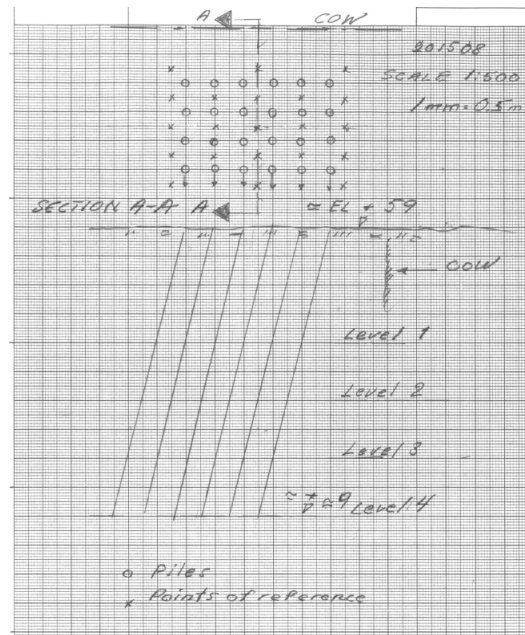 A COW
201508
SCALE 1:500
1mm = 0.5m
SECTION A-A A ≈ EL + 59
COW
Level 1
Level 2
Level 3
Level 4
o Piles
x Points of reference